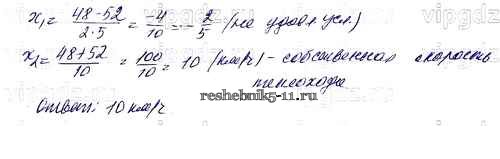 x₁ = (48-52)/(2·5) = -4/10 = -2/5 (не удовл усл.)
x₂ = (48+52)/10 = 100/10 = 10 (км/ч) - собственная скорость
теплохода
Ответ: 10 км/ч.
reshebnik5-11.ru
vipgdz